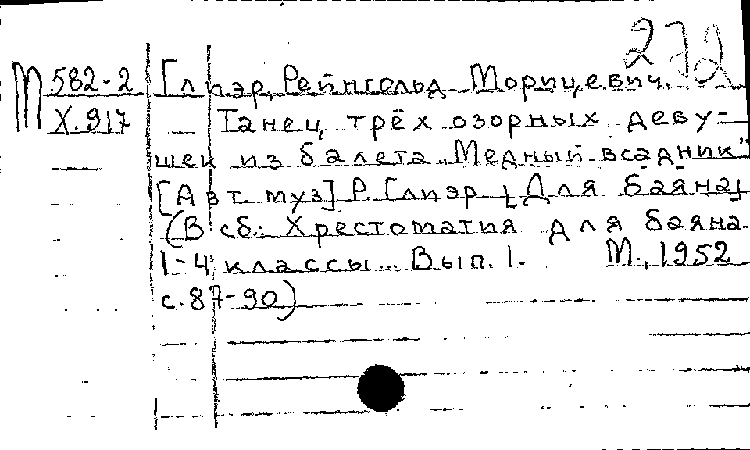 272
М 582-2 Глиэр, Рейнгольд Морицевич.
X.917 — Танец трёх озорных деву-
шек из балета „Медный всадник"
[Авт. муз] Р. Глиэр [Для баяна]
(В сб: Хрестоматия для баяна
1-4 классы... Вып. 1. М., 1952
с. 87-90)